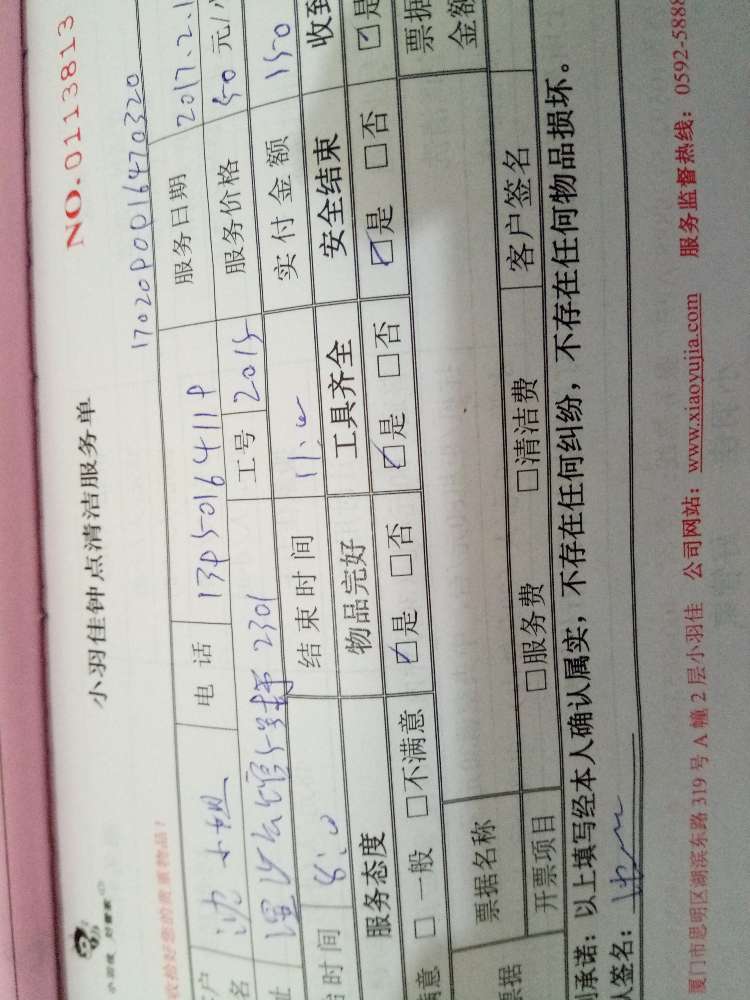 小羽佳 好管家
小羽佳钟点清洁服务单
NO.0113813
收检好您的贵重物品！
户 沈小姐 电话 服务日期 2017.2.1
名 工号 2015 服务价格 50 元/
址 2301 实付金额 150
时间 8:00 结束时间 11:00
服务态度 物品完好 工具齐全 安全结束 收到
满意 □一般 □不满意 ☑是 □否 ☑是 □否 ☑是 □否 ☑是
票据 票据名称 票据金额
开票项目 □服务费 □清洁费 客户签名
承诺：以上填写经本人确认属实，不存在任何纠纷，不存在任何物品损坏。
人签名：
厦门市思明区湖滨东路 319 号 A 幢 2 层小羽佳 公司网站：www.xiaoyujia.com 服务监督热线：0592-5888